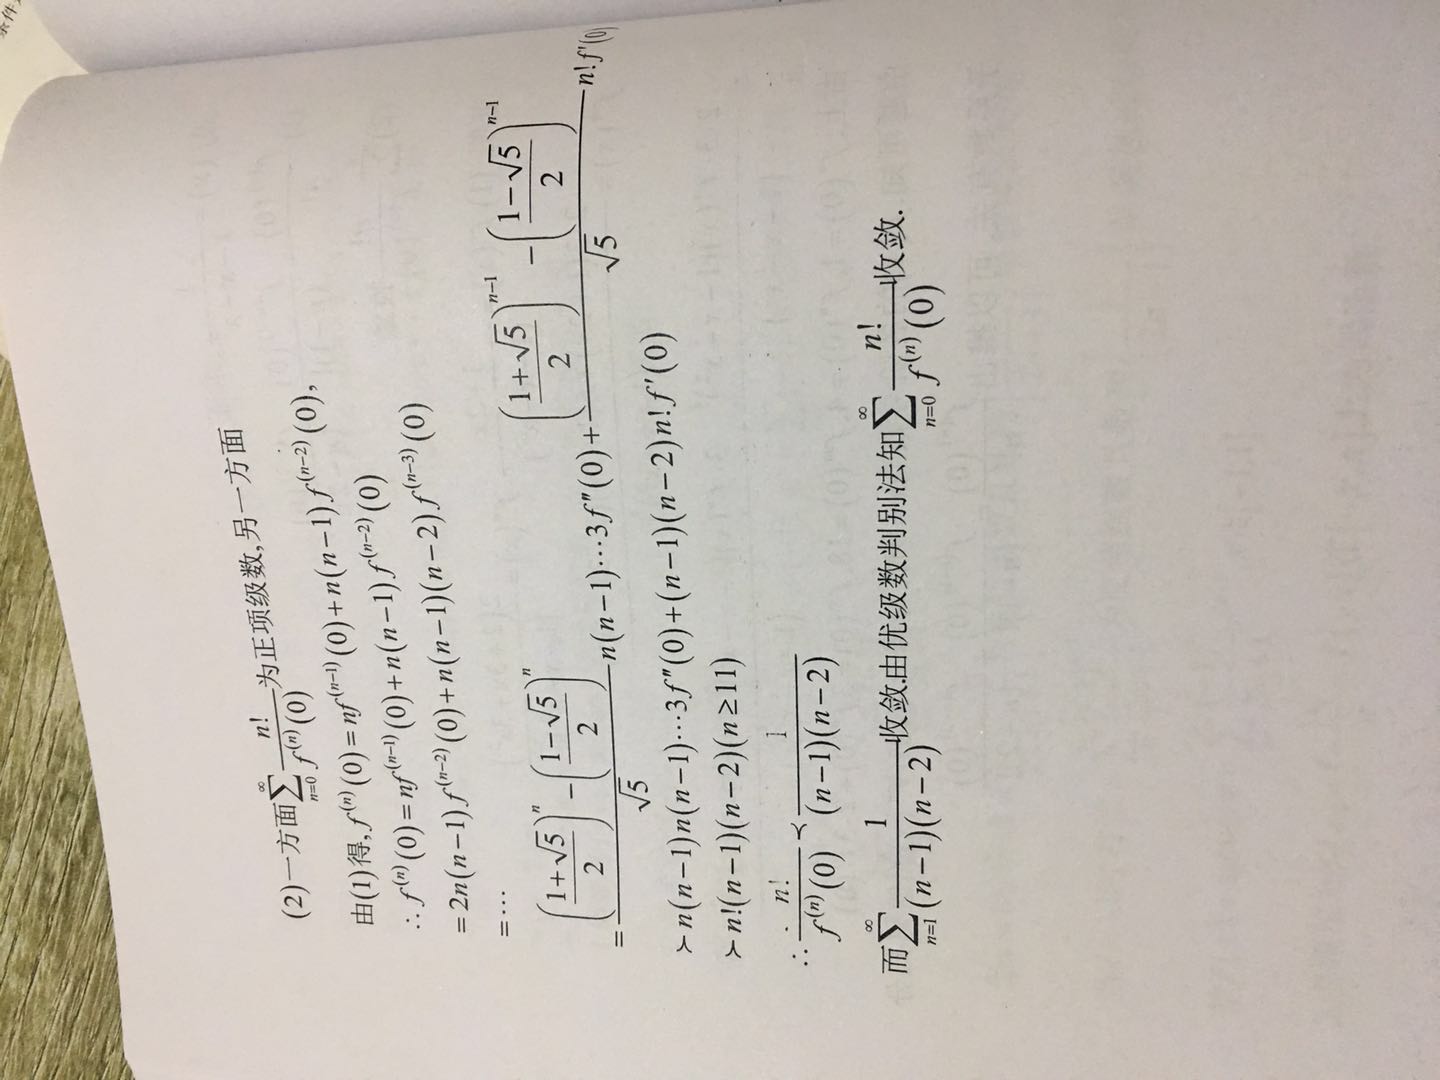 条件
(2)一方面∑_{n=0}^{∞} n!/f^{(n)}(0) 为正项级数,另一方面
由(1)得,f^{(n)}(0)=nf^{(n-1)}(0)+n(n-1)f^{(n-2)}(0),
∴f^{(n)}(0)=nf^{(n-1)}(0)+n(n-1)f^{(n-2)}(0)
=2n(n-1)f^{(n-2)}(0)+n(n-1)(n-2)f^{(n-3)}(0)
=…
=\frac{\left(\frac{1+\sqrt{5}}{2}\right)^{n}-\left(\frac{1-\sqrt{5}}{2}\right)^{n}}{\sqrt{5}}n(n-1)…3f″(0)+\frac{\left(\frac{1+\sqrt{5}}{2}\right)^{n-1}-\left(\frac{1-\sqrt{5}}{2}\right)^{n-1}}{\sqrt{5}}n!f′(0)
≻n(n-1)n(n-1)…3f″(0)+(n-1)(n-2)n!f′(0)
≻n!(n-1)(n-2)(n≥11)
∴\frac{n!}{f^{(n)}(0)}≺\frac{1}{(n-1)(n-2)}
而∑_{n=1}^{∞}\frac{1}{(n-1)(n-2)}收敛.由优级数判别法知∑_{n=0}^{∞}\frac{n!}{f^{(n)}(0)}收敛.